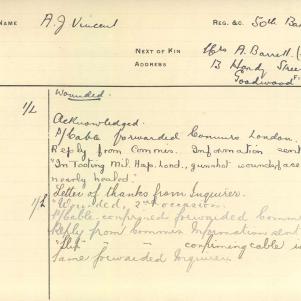 NAME A J Vincent REG. &C. 50th Ba
NEXT OF KIN Mrs A. Barrett.
ADDRESS 13 Hendy Stree
Goodwood
Wounded.
1/2
Acknowledged.
P/Cable forwarded Commrs London.
Reply from Commrs. Information sent
"In Tooting Mil. Hosp. Lond., gunshot wound face
nearly healed."
Letter of thanks from Inquirer.
"Wounded, 2nd occasion.
P/Cable forwarded Comme
Reply from Commrs Information sent
confirming cable
Same forwarded Inquirer.